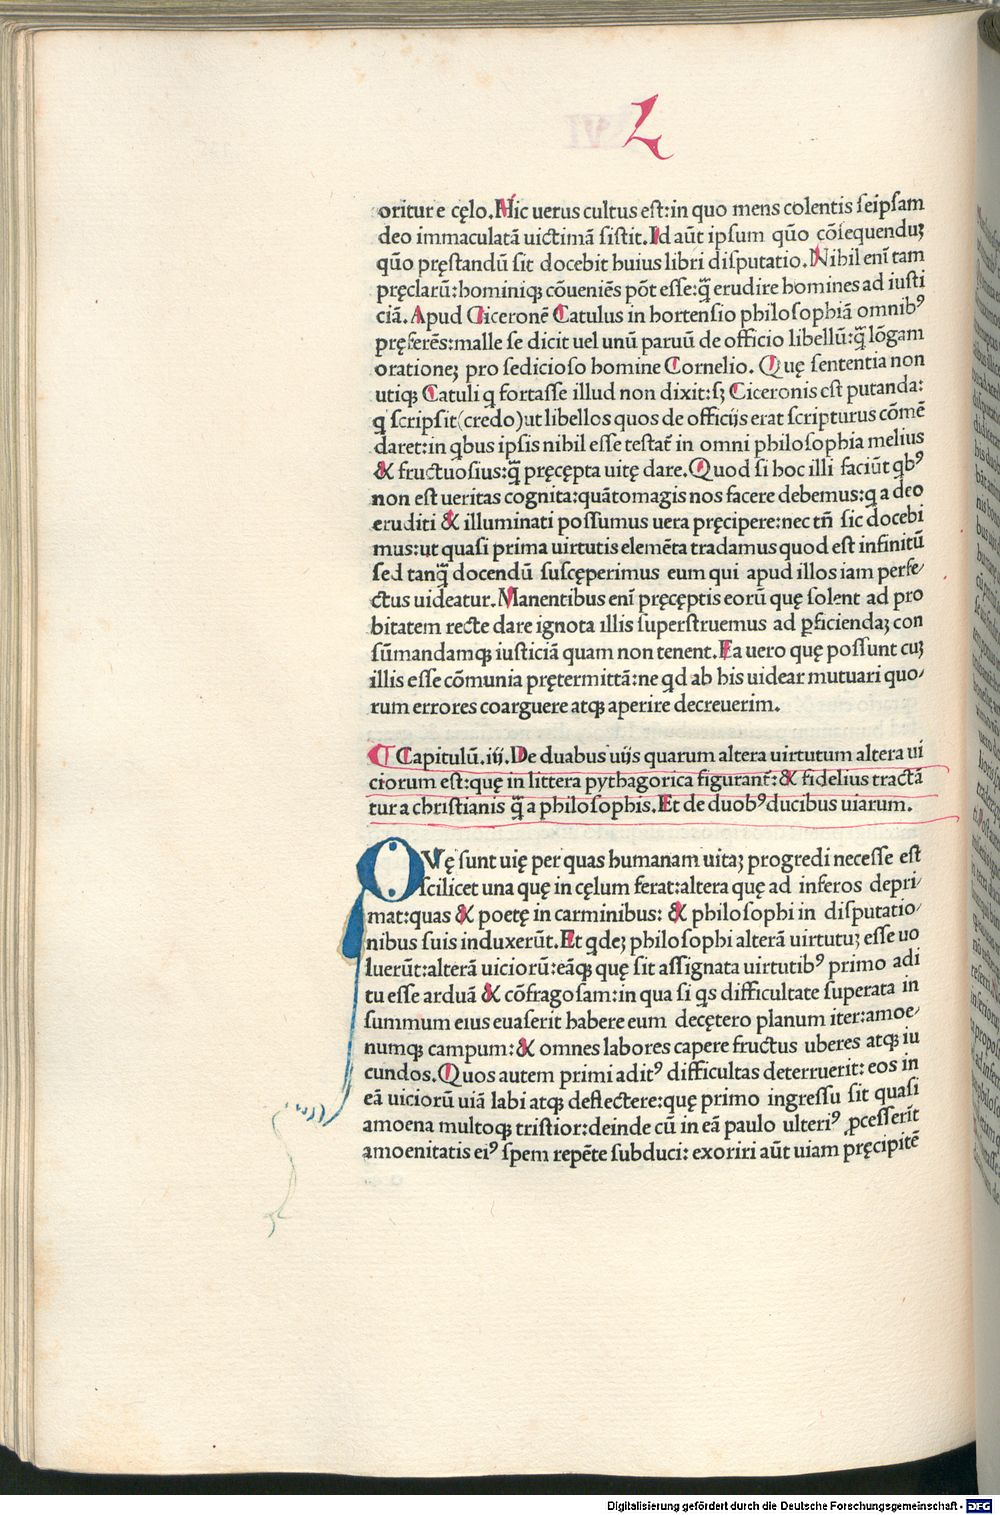 L
oritur e cęlo. Hic uerus cultus est: in quo mens colentis seipsam
deo immaculatā uictimā sistit. Id aūt ipsum quō cōsequenduꝫ
quō pręstandū sit docebit huius libri disputatio. Nihil enī tam
pręclarū: hominiqꝫ cōueniēs pōt esse: q̄ erudire homines ad iusti
ciā. Apud Ciceronē Catulus in hortensio philosophiā omnibꝰ
pręferēs: malle se dicit uel unū paruū de officio libellū: q̄ lōgam
orationeꝫ pro sedicioso homine Cornelio. Quę sententia non
utiqꝫ Catuli q fortasse illud non dixit: sꝫ Ciceronis est putanda:
q scripsit (credo) ut libellos quos de officijs erat scripturus cōmē
daret: in qbus ipsis nihil esse testat̄ in omni philosophia melius
& fructuosius: q̄ pręcępta uitę dare. Quod si hoc illi faciūt qbꝰ
non est ueritas cognita: quātomagis nos facere debemus: q a deo
eruditi & illuminati possumus uera pręcipere: nec tn̄ sic docebi
mus: ut quasi prima uirtutis elemēta tradamus quod est infinitū
sed tanq̄ docendū suscęperimus eum qui apud illos iam perfe/
ctus uideatur. Manentibus enī pręcęptis eorū quę solent ad pro
bitatem recte dare ignota illis superstruemus ad ꝑficiendaꝫ con
sūmandamqꝫ iusticiā quam non tenent. Ea uero quę possunt cuꝫ
illis esse cōmunia prętermittā: ne qd ab his uidear mutuari quo/
rum errores coarguere atqꝫ aperire decreuerim.
¶ Capitulū. iij. De duabus uijs quarum altera uirtutum altera ui
ciorum est: quę in littera pythagorica figurant̄: & fidelius tractā
tur a christianis q̄ a philosophis. Et de duobꝰ ducibus uiarum.
QVę sunt uię per quas humanam uitaꝫ progredi necesse est
scilicet una quę in cęlum ferat: altera quę ad inferos depri/
mat: quas & poetę in carminibus: & philosophi in disputatio/
nibus suis induxerūt. Et qdeꝫ philosophi alterā uirtutuꝫ esse uo
luerūt: alterā uiciorū: eāqꝫ quę sit assignata uirtutibꝰ primo adi
tu esse arduā & cōfragosam: in qua si qs difficultate superata in
summum eius euaserit habere eum decętero planum iter: amoe/
numqꝫ campum: & omnes labores capere fructus uberes atqꝫ iu
cundos. Quos autem primi aditꝰ difficultas deterruerit: eos in
eā uiciorū uiā labi atqꝫ deflectere: quę primo ingressu sit quasi
amoena multoqꝫ tristior: deinde cū in eā paulo ulteriꝰ ꝓcesserīt
amoenitatis eiꝰ spem repēte subduci: exoriri aūt uiam pręcipitē
Digitalisierung gefördert durch die Deutsche Forschungsgemeinschaft - DFG